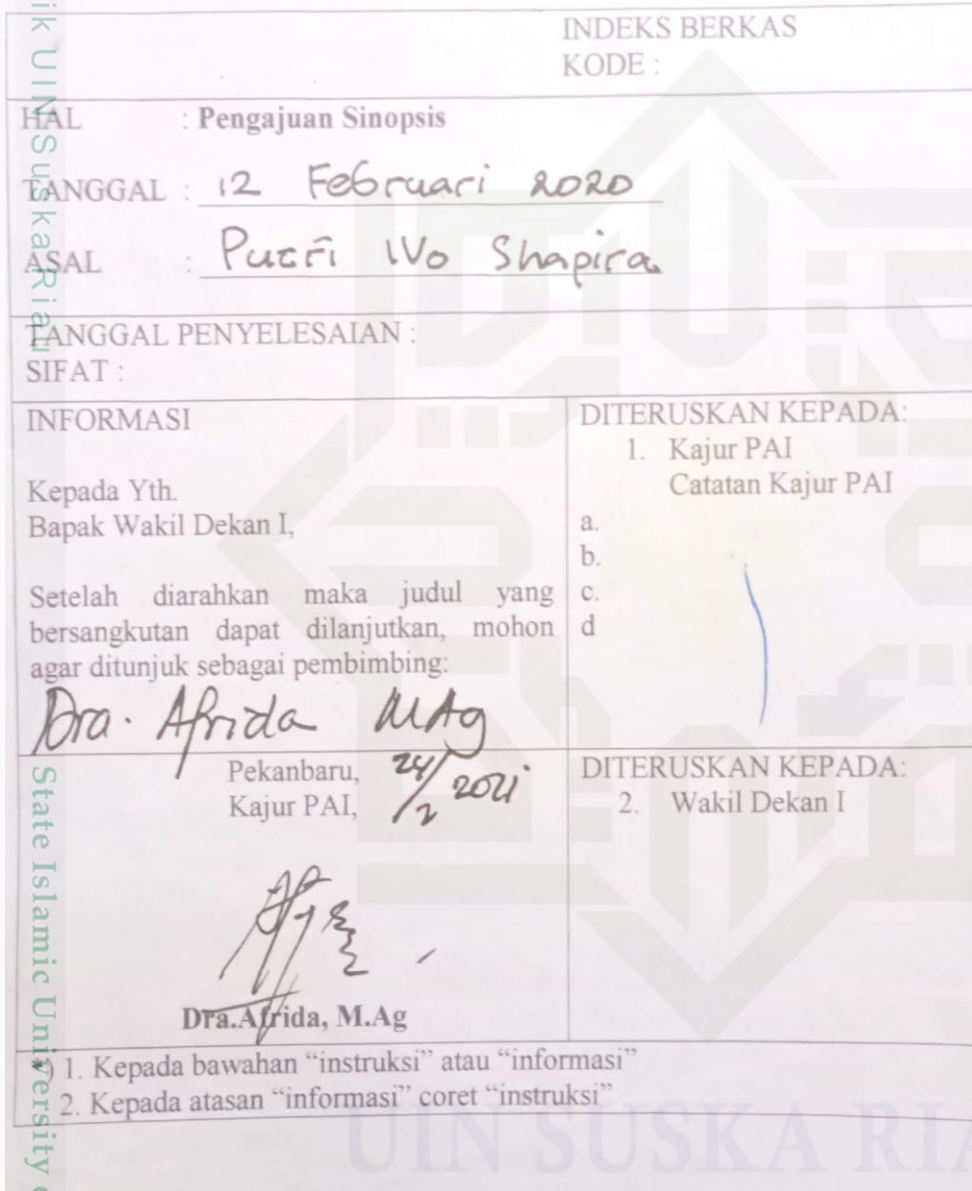 INDEKS BERKAS
KODE :
HAL : Pengajuan Sinopsis
TANGGAL : 12 Februari 2020
ASAL : Putri Wo Shapira
TANGGAL PENYELESAIAN :
SIFAT :
INFORMASI
Kepada Yth.
Bapak Wakil Dekan I,
Setelah diarahkan maka judul yang
bersangkutan dapat dilanjutkan, mohon
agar ditunjuk sebagai pembimbing:
Dra. Afrida MAg
Pekanbaru, 24/2 2021
Kajur PAI,
Dra.Afrida, M.Ag
DITERUSKAN KEPADA:
1. Kajur PAI
Catatan Kajur PAI
a.
b.
c.
d
DITERUSKAN KEPADA:
2. Wakil Dekan I
*) 1. Kepada bawahan “instruksi” atau “informasi”
2. Kepada atasan “informasi” coret “instruksi”
ik UIN Suska Riau
State Islamic University
UIN SUSKA RIA